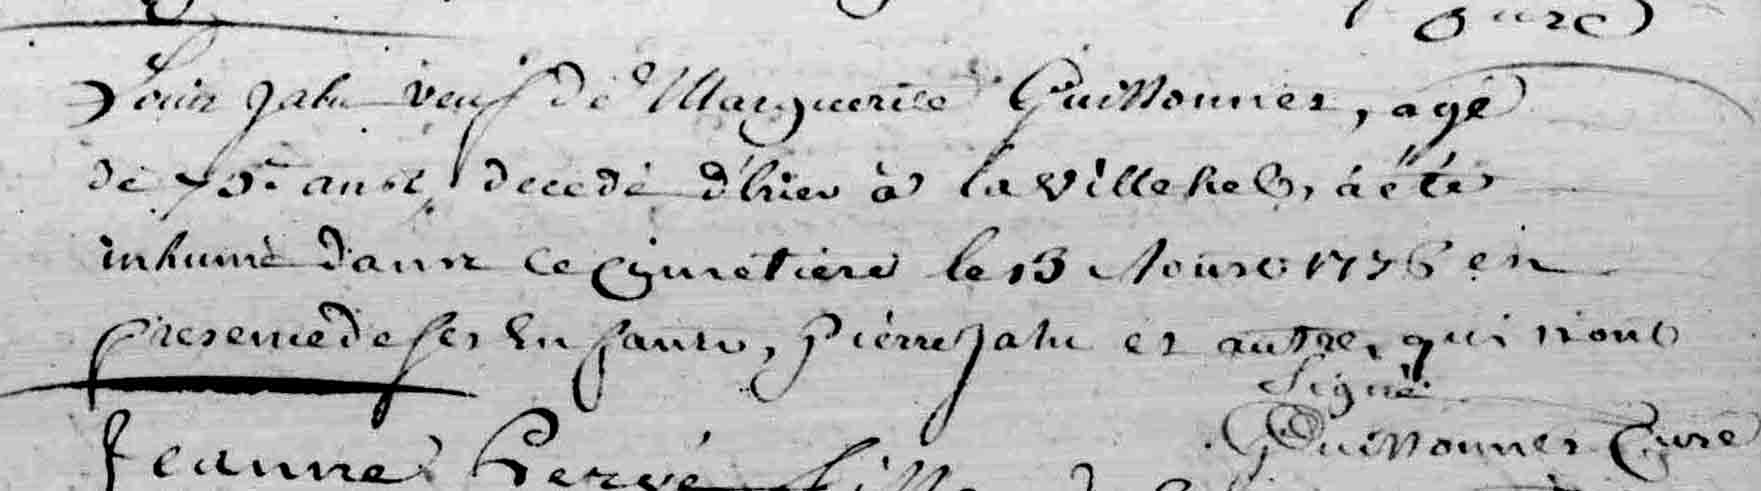 curé
Louis Jahu veuf de Marguerite Guissonnet, agé
de 75. ans, decedé d'hier à la villeheb, a été
inhumé dans ce cymetiere le 13 Aoust 1776 en
presence de ses Enfants, Pierre Jahu et autre, qui n'ont
Signé
Guissonnet Curé
Jeanne Hervé fille de